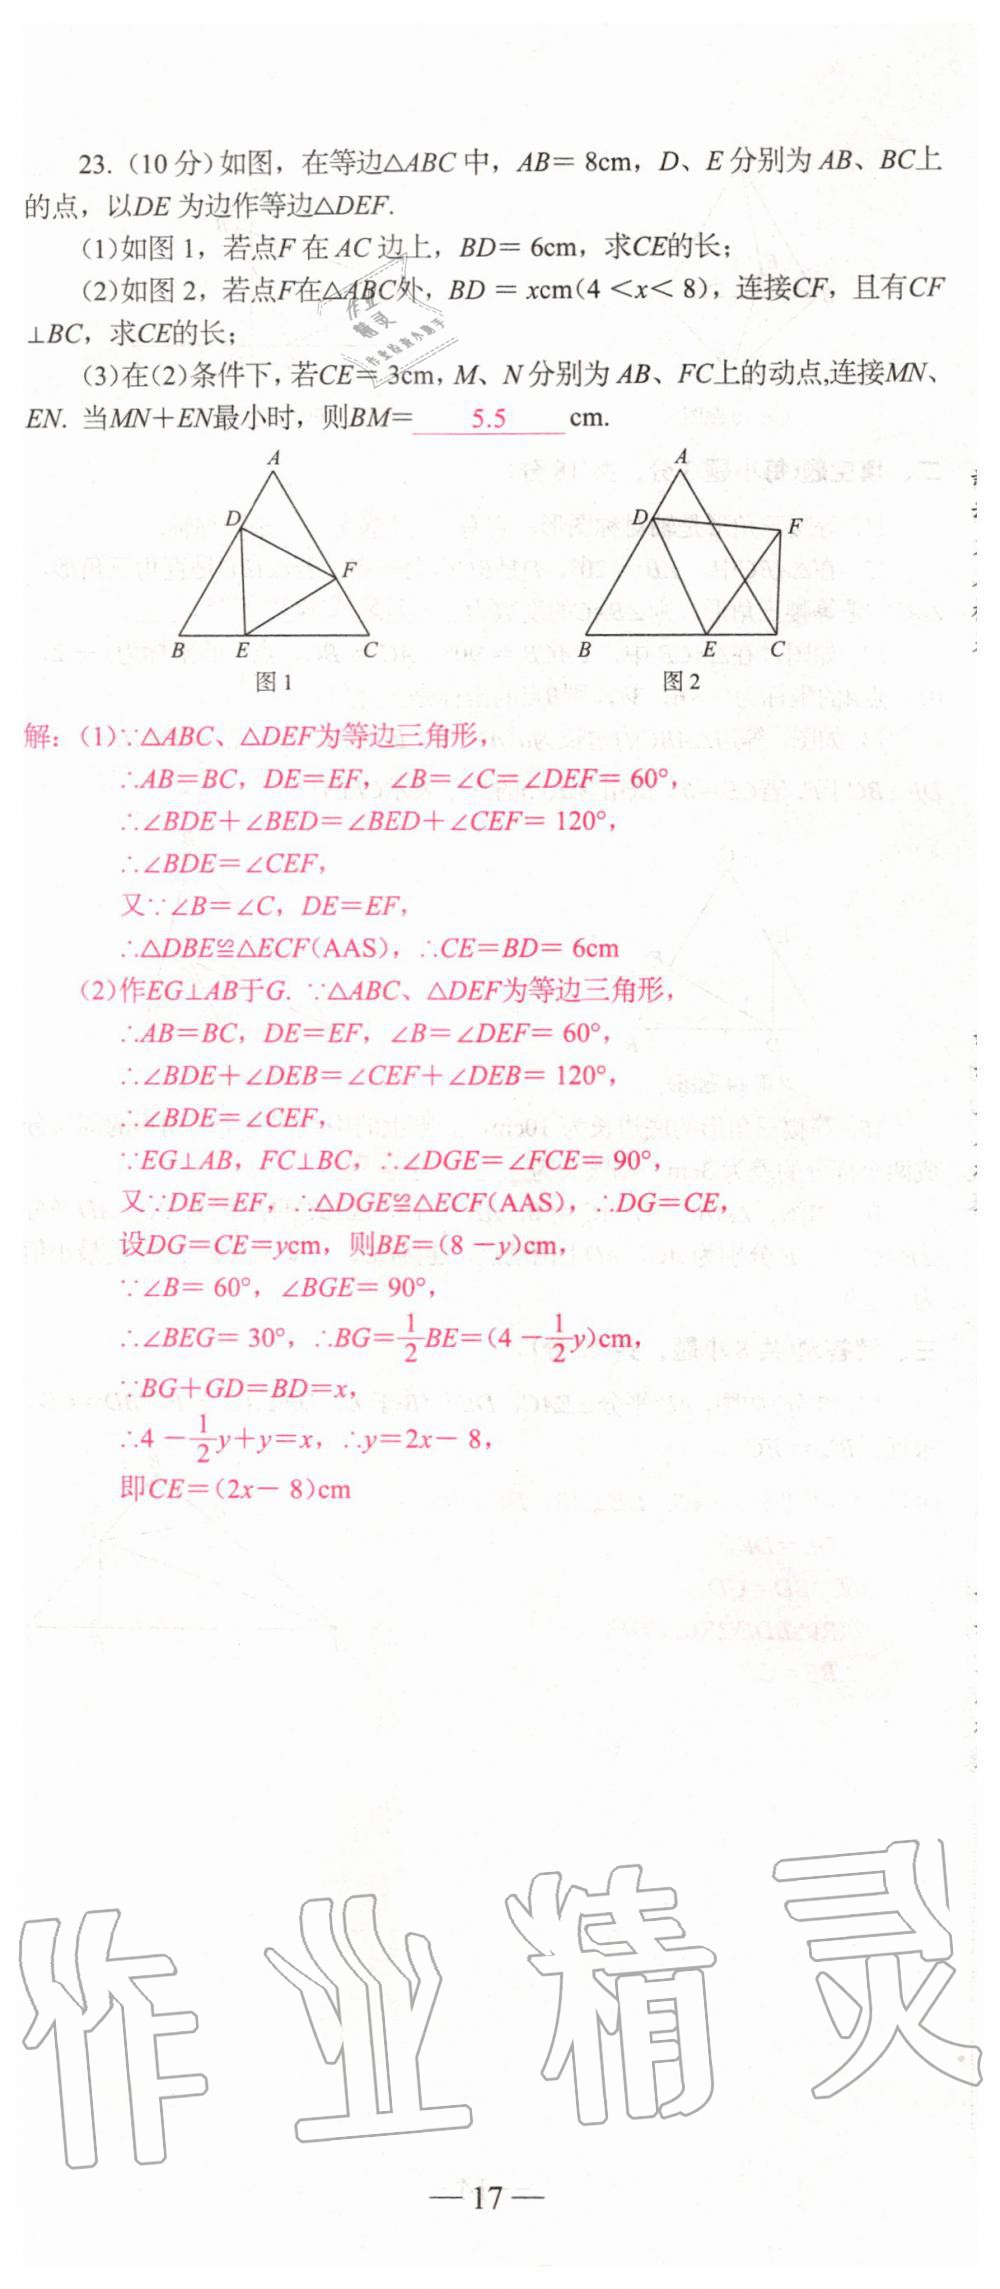 23. (10 分)如图，在等边△ABC 中，AB= 8cm，D、E 分别为 AB、BC上
的点，以DE 为边作等边△DEF.
(1)如图 1，若点F 在 AC 边上，BD= 6cm，求CE的长；
(2)如图 2，若点F在△ABC外，BD = xcm(4 <x< 8)，连接CF，且有CF
⊥BC，求CE的长；
(3)在(2)条件下，若CE= 3cm，M、N 分别为 AB、FC上的动点,连接MN、
EN. 当MN+EN最小时，则BM= 5.5 cm.
A
D
F
B E C
图 1
A
D
F
B E C
图 2
解：(1)∵△ABC、△DEF为等边三角形，
∴AB=BC，DE=EF，∠B=∠C=∠DEF= 60°，
∴∠BDE+∠BED=∠BED+∠CEF= 120°，
∴∠BDE=∠CEF，
又∵∠B=∠C，DE=EF，
∴△DBE≌△ECF(AAS)，∴CE=BD= 6cm
(2)作EG⊥AB于G. ∵△ABC、△DEF为等边三角形，
∴AB=BC，DE=EF，∠B=∠DEF= 60°，
∴∠BDE+∠DEB=∠CEF+∠DEB= 120°，
∴∠BDE=∠CEF，
∵EG⊥AB，FC⊥BC，∴∠DGE=∠FCE= 90°，
又∵DE=EF，∴△DGE≌△ECF(AAS)，∴DG=CE，
设DG=CE=ycm，则BE=(8 -y)cm，
∵∠B= 60°，∠BGE= 90°，
∴∠BEG= 30°，∴BG=1/2BE=(4 -1/2y)cm，
∵BG+GD=BD=x，
∴4 -1/2y+y=x，∴y=2x- 8，
即CE=(2x- 8)cm
作业精灵
— 17 —